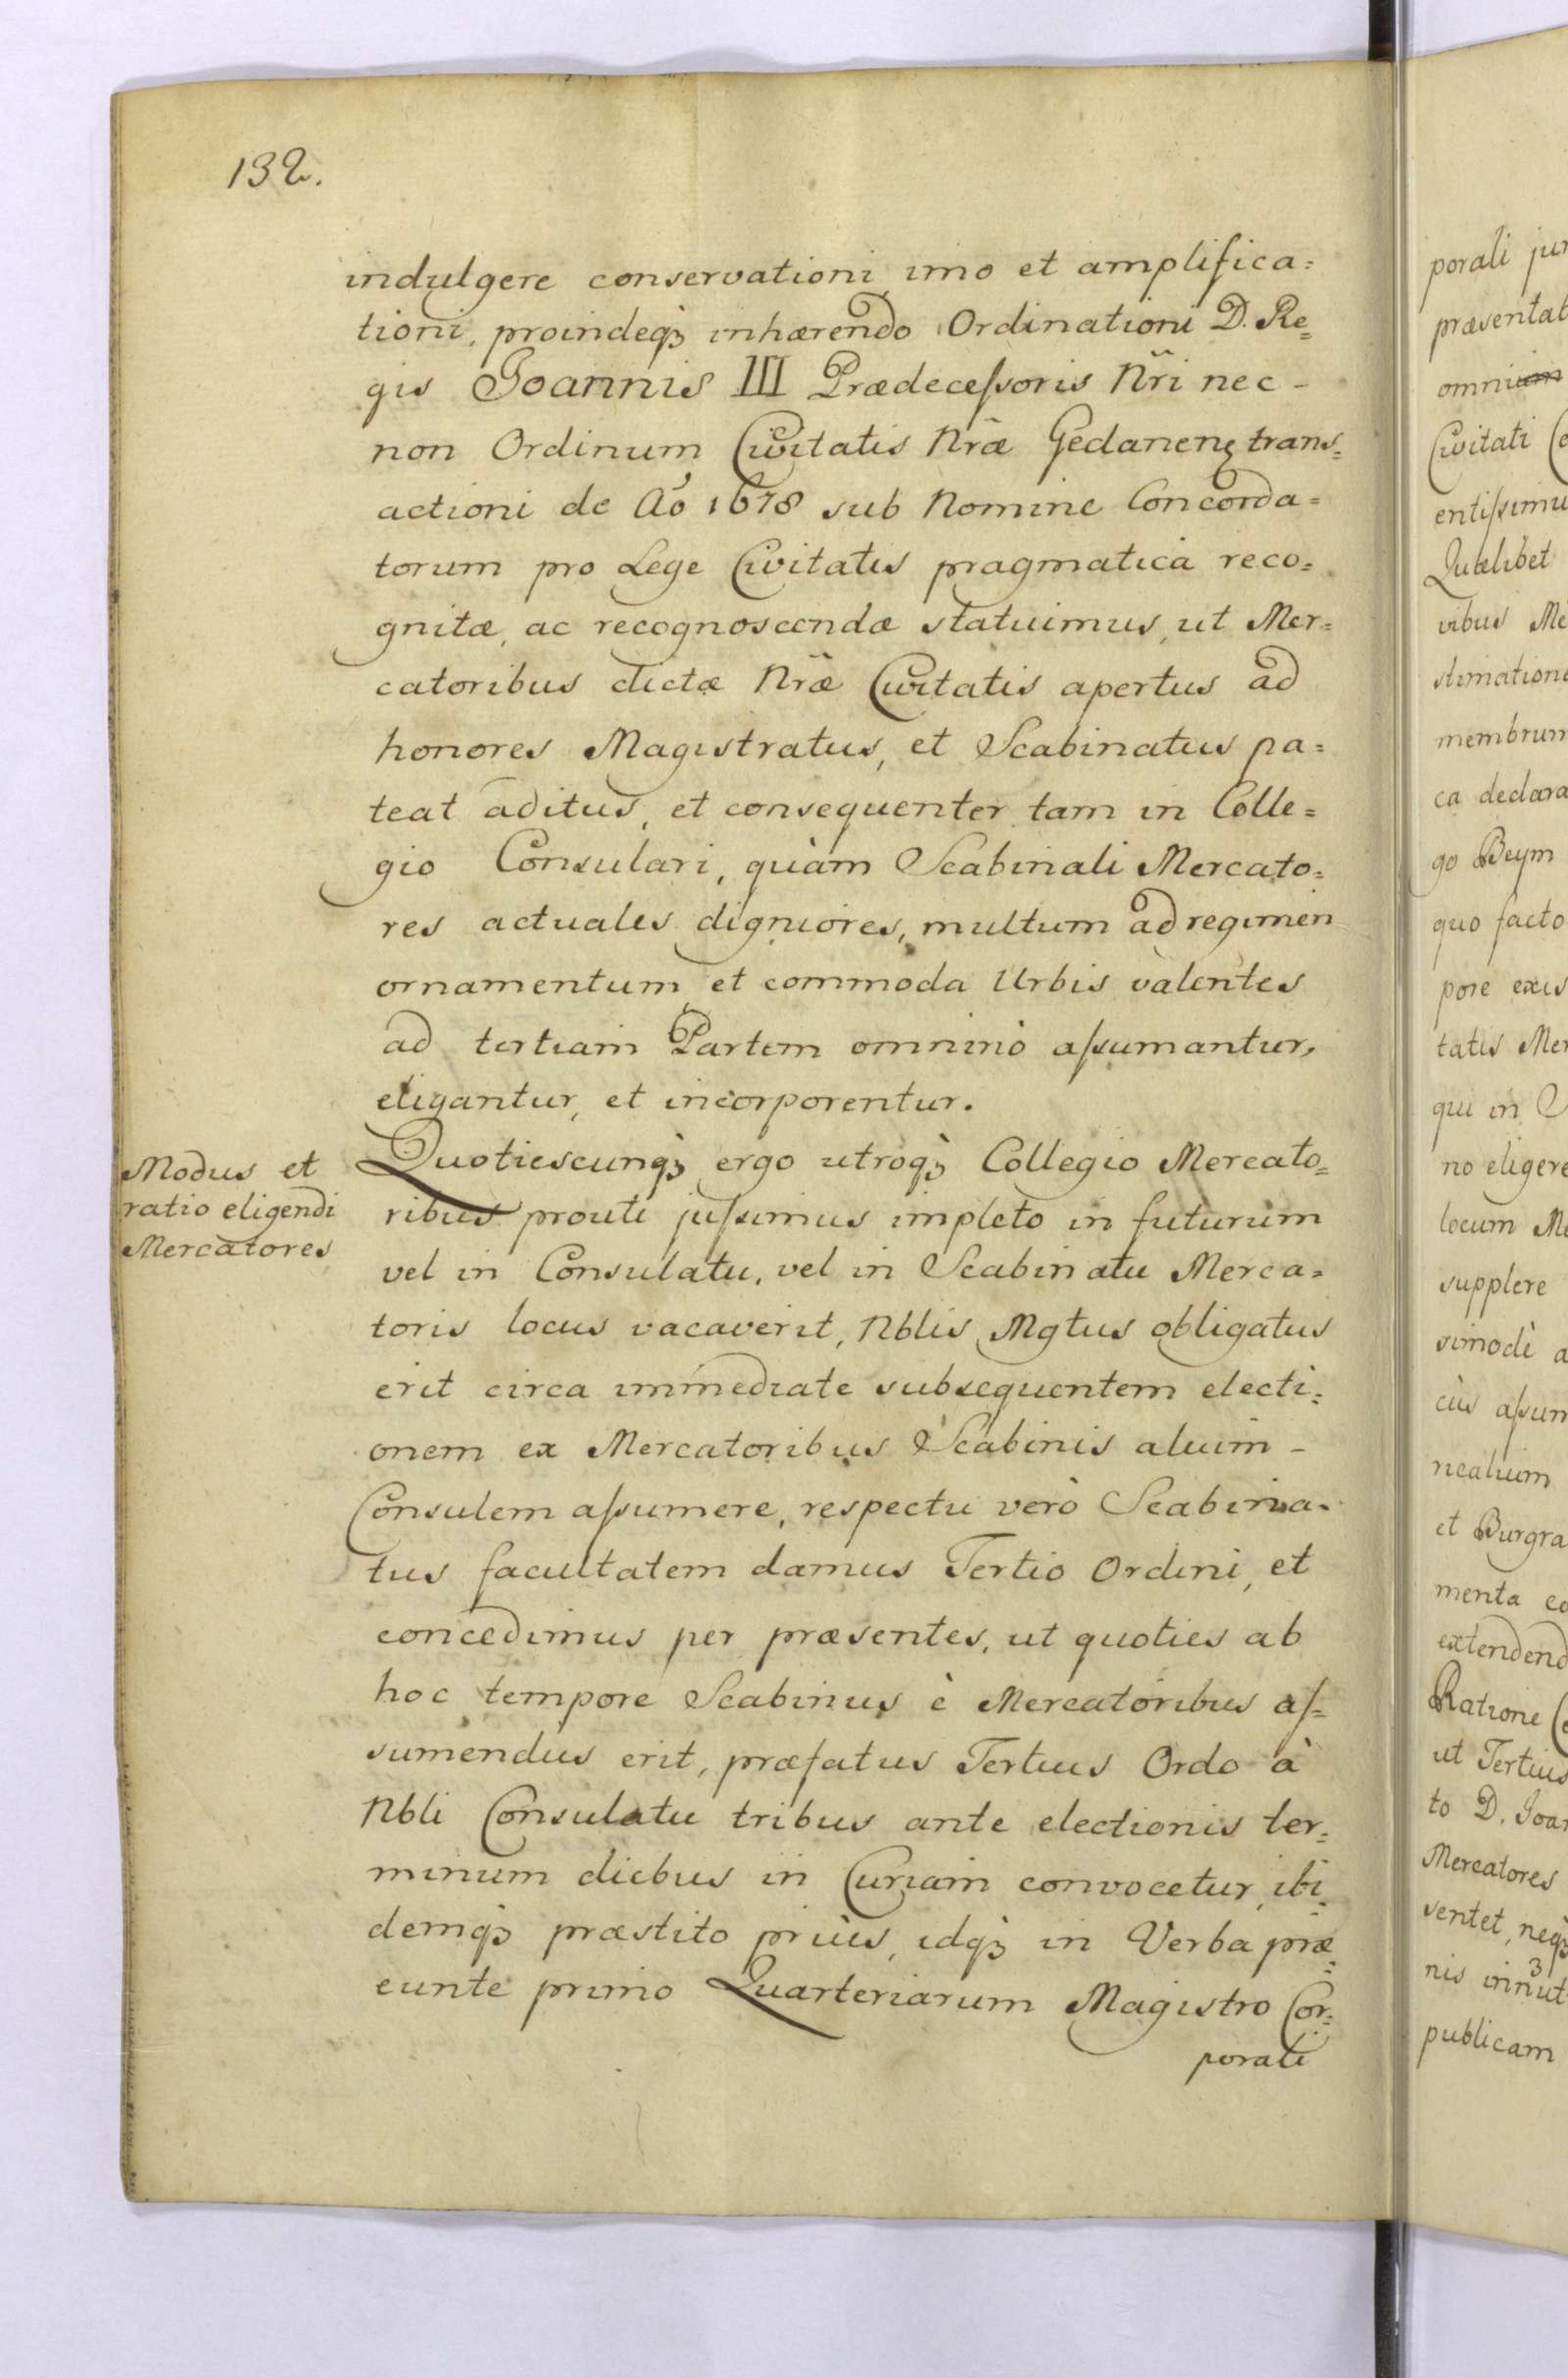 132.
indulgere conservationi imo et amplifica=
tioni, proindeqꝫ inhærendo Ordinationi D. Re=
gis Joannis III Prædeceſsoris Nr̃i nec-
non Ordinum Civitatis Nr̃æ Gedanenꝫ trans=
actioni de Aõ 1678 sub Nomine Concorda=
torum pro Lege Civitatis pragmatica reco=
gnitæ, ac recognoscendæ statuimus, ut Mer=
catoribus dictæ Nr̃æ Civitatis apertus ad
honores Magistratus, et Scabinatus pa=
teat aditus, et consequenter tam in Colle=
gio Consulari, quàm Scabinali Mercato=
res actuales digniores, multum ad regimen
ornamentum et commoda Urbis valentes
ad tertiam Partem omninò aſsumantur,
eligantur, et incorporentur.
Modus et
ratio eligendi
Mercatores
Quotiescunqꝫ ergo utroqꝫ Collegio Mercato=
ribus prouti juſsimus impleto in futurum
vel in Consulatu, vel in Scabinatu Merca=
toris locus vacaverit, Nblis Mgtus obligatus
erit circa immediate subsequentem electi=
onem ex Mercatoribus Scabinis alium-
Consulem aſsumere, respectu verò Scabina=
tus facultatem damus Tertio Ordini, et
concedimus per præsentes, ut quoties ab
hoc tempore Scabinus è Mercatoribus aſ=
sumendus erit, præfatus Tertius Ordo à
Nbli Consulatu tribus ante electionis ter=
minum diebus in Curiam convocetur, ibi=
demqꝫ præstito priùs, idqꝫ in Verba præ=
eunte primo Quarteriarum Magistro Cor=
porali
porali jur
præsentat
omni
Civitati
entiſsimu
Quælibet
ribus Me
stimatione
membrum
ca declara
go Beym
quo facto
pore exis
tatis Mer
qui in
no eligere
locum Me
supplere
simodi a
ciùs aſsum
nealium
et Burgra
menta eo
extendend
Ratione
ut Tertius
to D. Joan
Mercatores
sentet, neqꝫ
nis innut
publicam